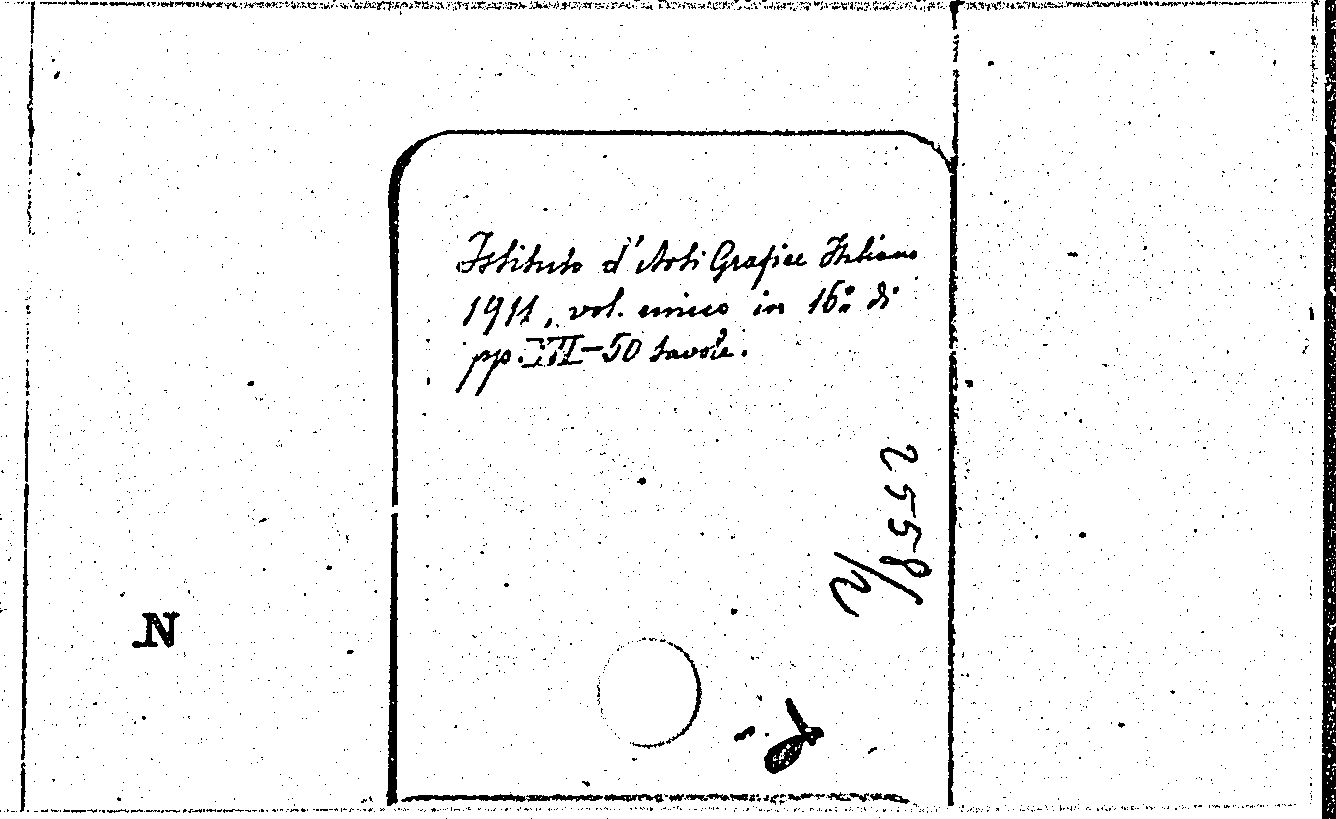 Istituto d'Arti Grafice Italiano
1911, vol. unico in 16° di
pp. XVII-50 tavole.
2558/2
N